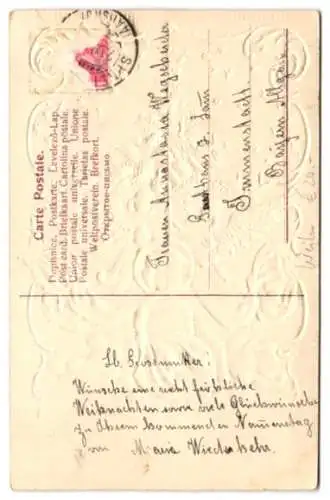 Carte Postale.
Dopisnice. Postkarte. Levelező-Lap.
Post card. Briefkaart. Cartolina postale.
Union postale universelle. Unione
Postale universale. Tarjetas postale.
Weltpostverein. Brefkort.
Открытое письмо
Frauen Anastasia
Gasthaus z.
Immenstadt
Bayern Allgäu
Lb. Grossmutter!
Wünsche eine recht fröhliche
Weihnachten sowie viele Glückwünsche
zu Ihrem kommenden Namenstag
von Marie Wiederkehr.